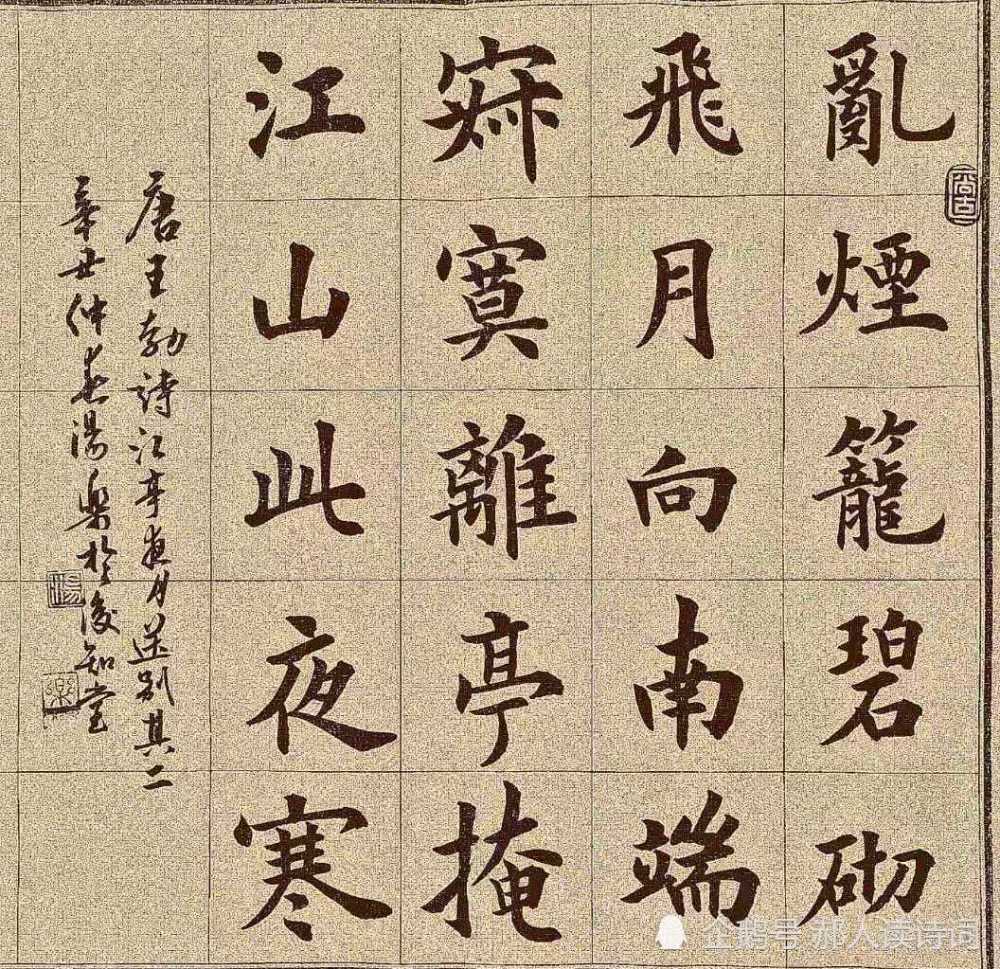 亂煙籠碧砌
飛月向南端
寂寞離亭掩
江山此夜寒
唐王勃詩江亭夜月送别其二
辛丑仲春湯樂於後知堂
尚古
企鹅号 邢人读诗词